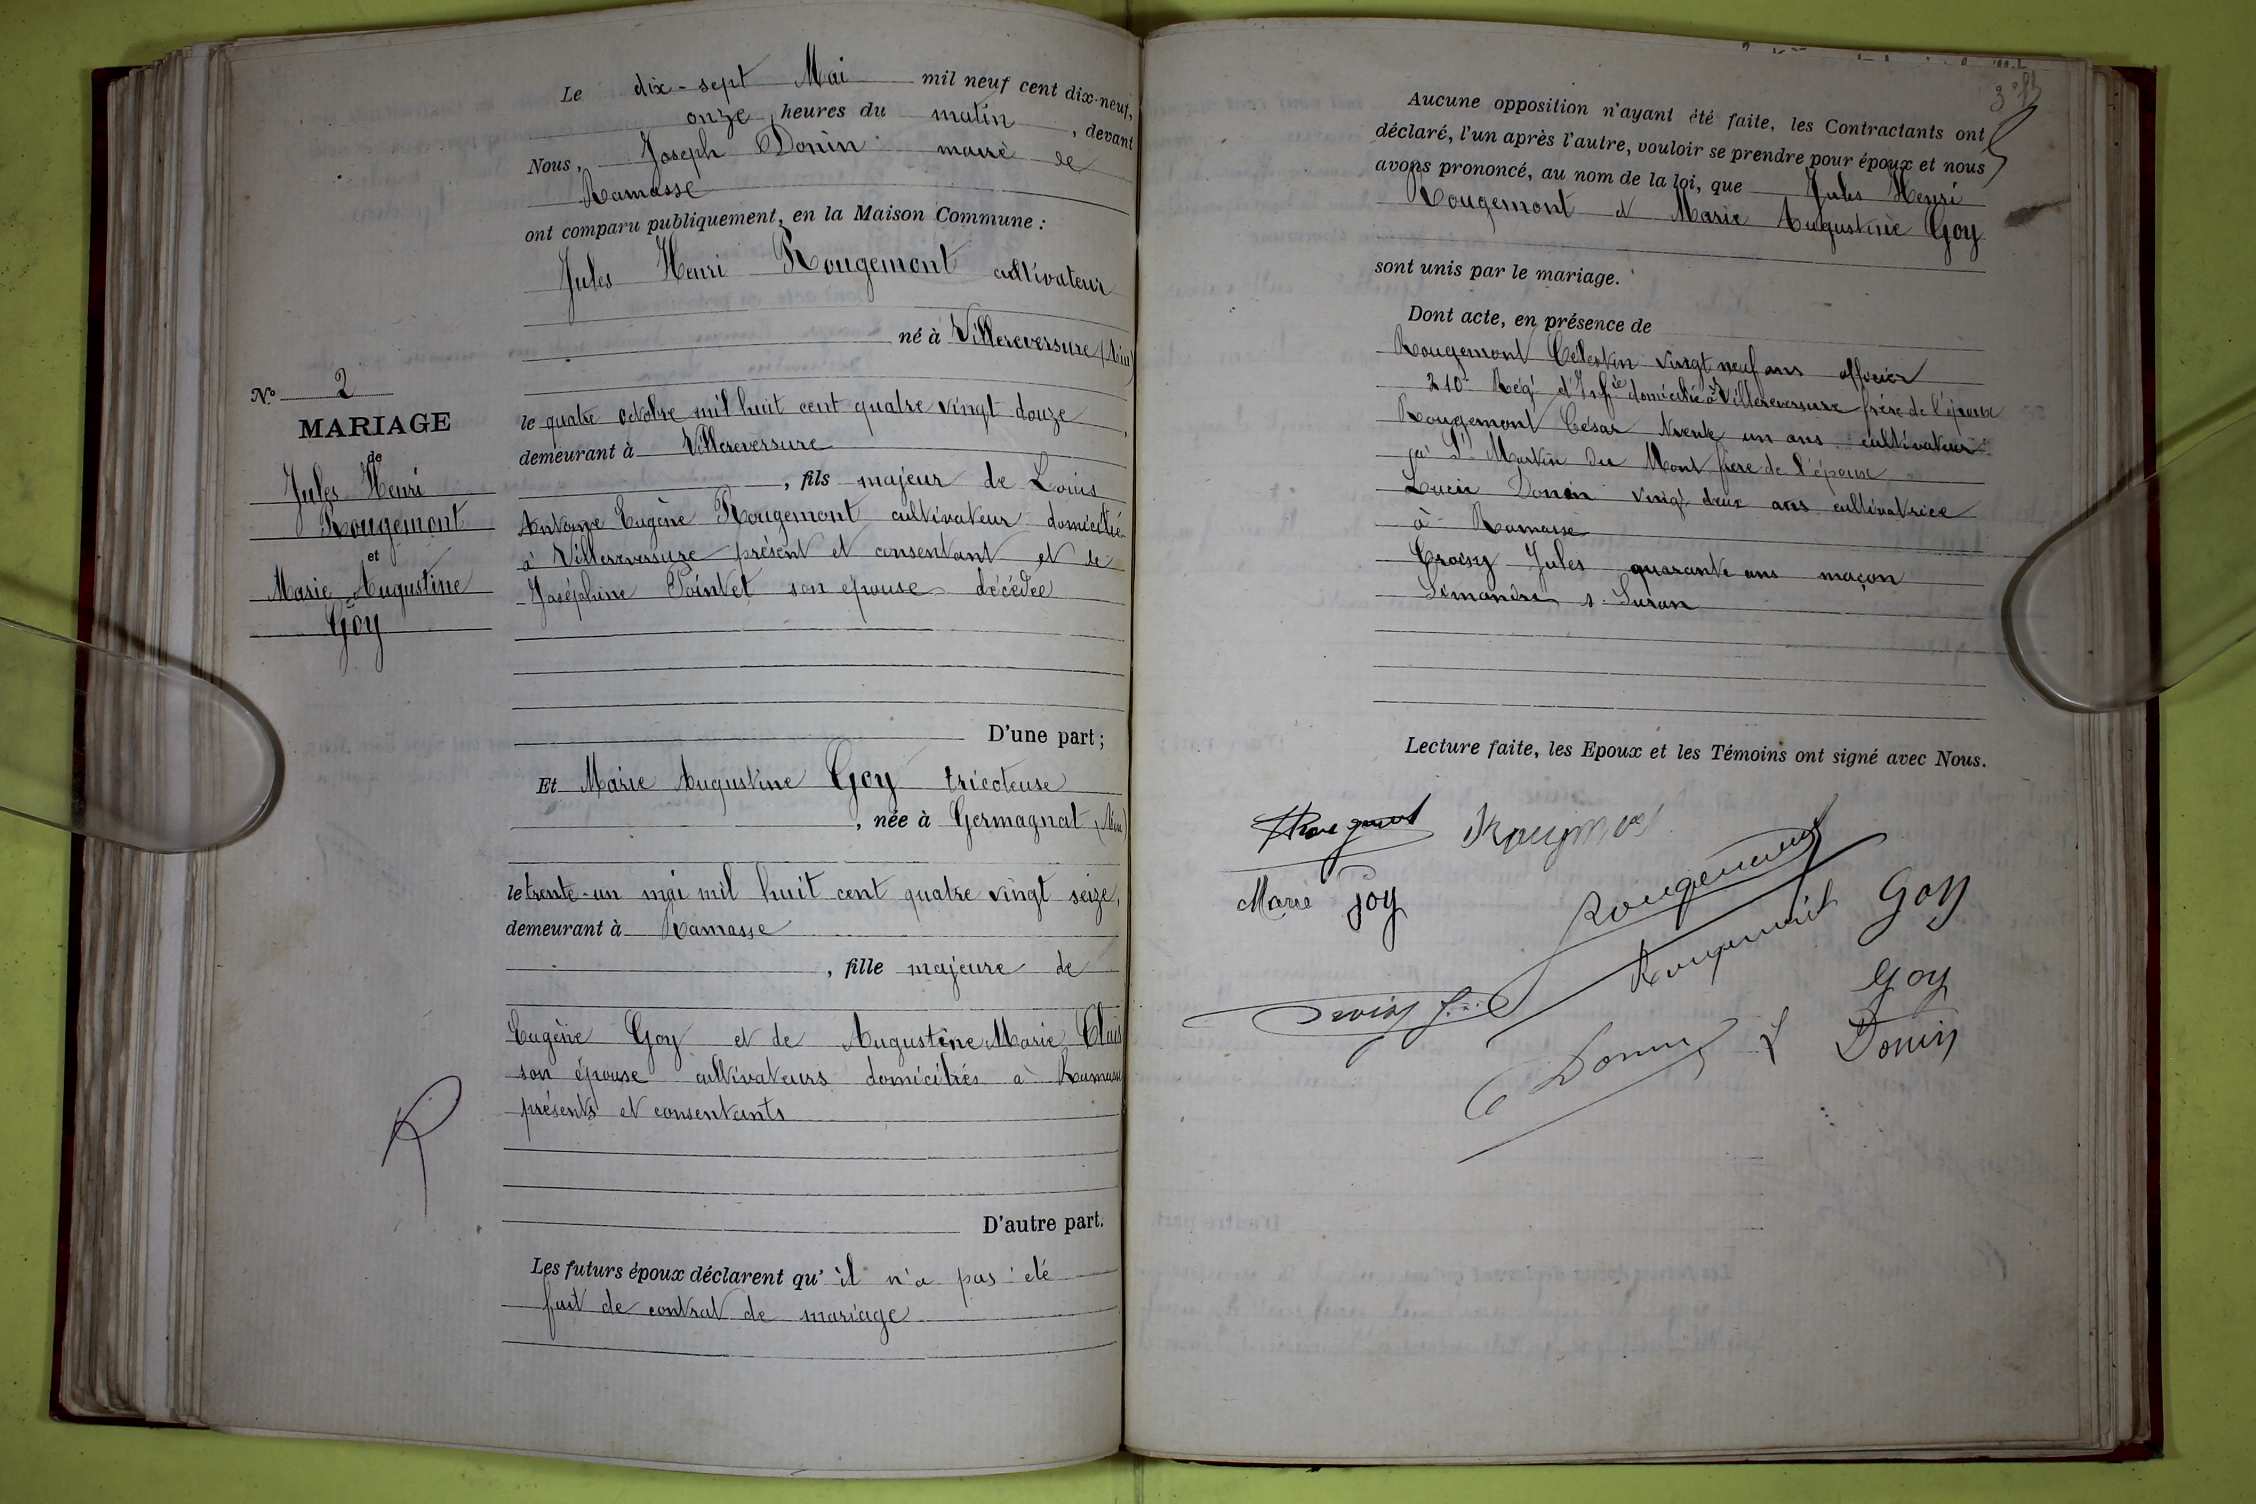 Le dix-sept Mai mil neuf cent dix-neuf,
onze heures du matin, devant
Nous, Joseph Donin maire de
Ramasse
ont comparu publiquement, en la Maison Commune :
Jules Henri Rougemont cultivateur
né à Villereversure (Ain)
le quatre octobre mil huit cent quatre vingt douze,
demeurant à Villereversure
, fils majeur de Louis
Antoine Eugène Rougemont cultivateur domicilié
à Villereversure présent et consentant et de
Joséphine Pointet son épouse décédée
D'une part ;
No 2
MARIAGE
de
Jules Henri
Rougemont
et
Marie Augustine
Goy
Et Marie Augustine Goy tricoteuse
, née à Germagnat (Ain)
le trente-un mai mil huit cent quatre vingt seize,
demeurant à Ramasse
, fille majeure de
Eugène Goy et de Augustine Marie
son épouse cultivateurs domiciliés à Ramasse
présents et consentants
D'autre part.
Les futurs époux déclarent qu'il n'a pas été
fait de contrat de mariage
R
Aucune opposition n'ayant été faite, les Contractants ont
déclaré, l'un après l'autre, vouloir se prendre pour époux et nous
avons prononcé, au nom de la loi, que Jules Henri
Rougemont et Marie Augustine Goy
sont unis par le mariage.
Dont acte, en présence de
Rougemont Célestin vingt neuf ans officier
210e Regt d'Infie domicilié à Villereversure frère de l'époux
Rougemont César trente un ans cultivateur
St Martin du Mont frère de l'époux
Lucie Donin vingt deux ans cultivatrice
à Ramasse
Croisy Jules quarante ans maçon
Simandre s. Suran
Lecture faite, les Epoux et les Témoins ont signé avec Nous.
Rougemont
Rougemont
Marie Goy
Rougemont
Rougemont
Goy
Goy
Donin
L Donin